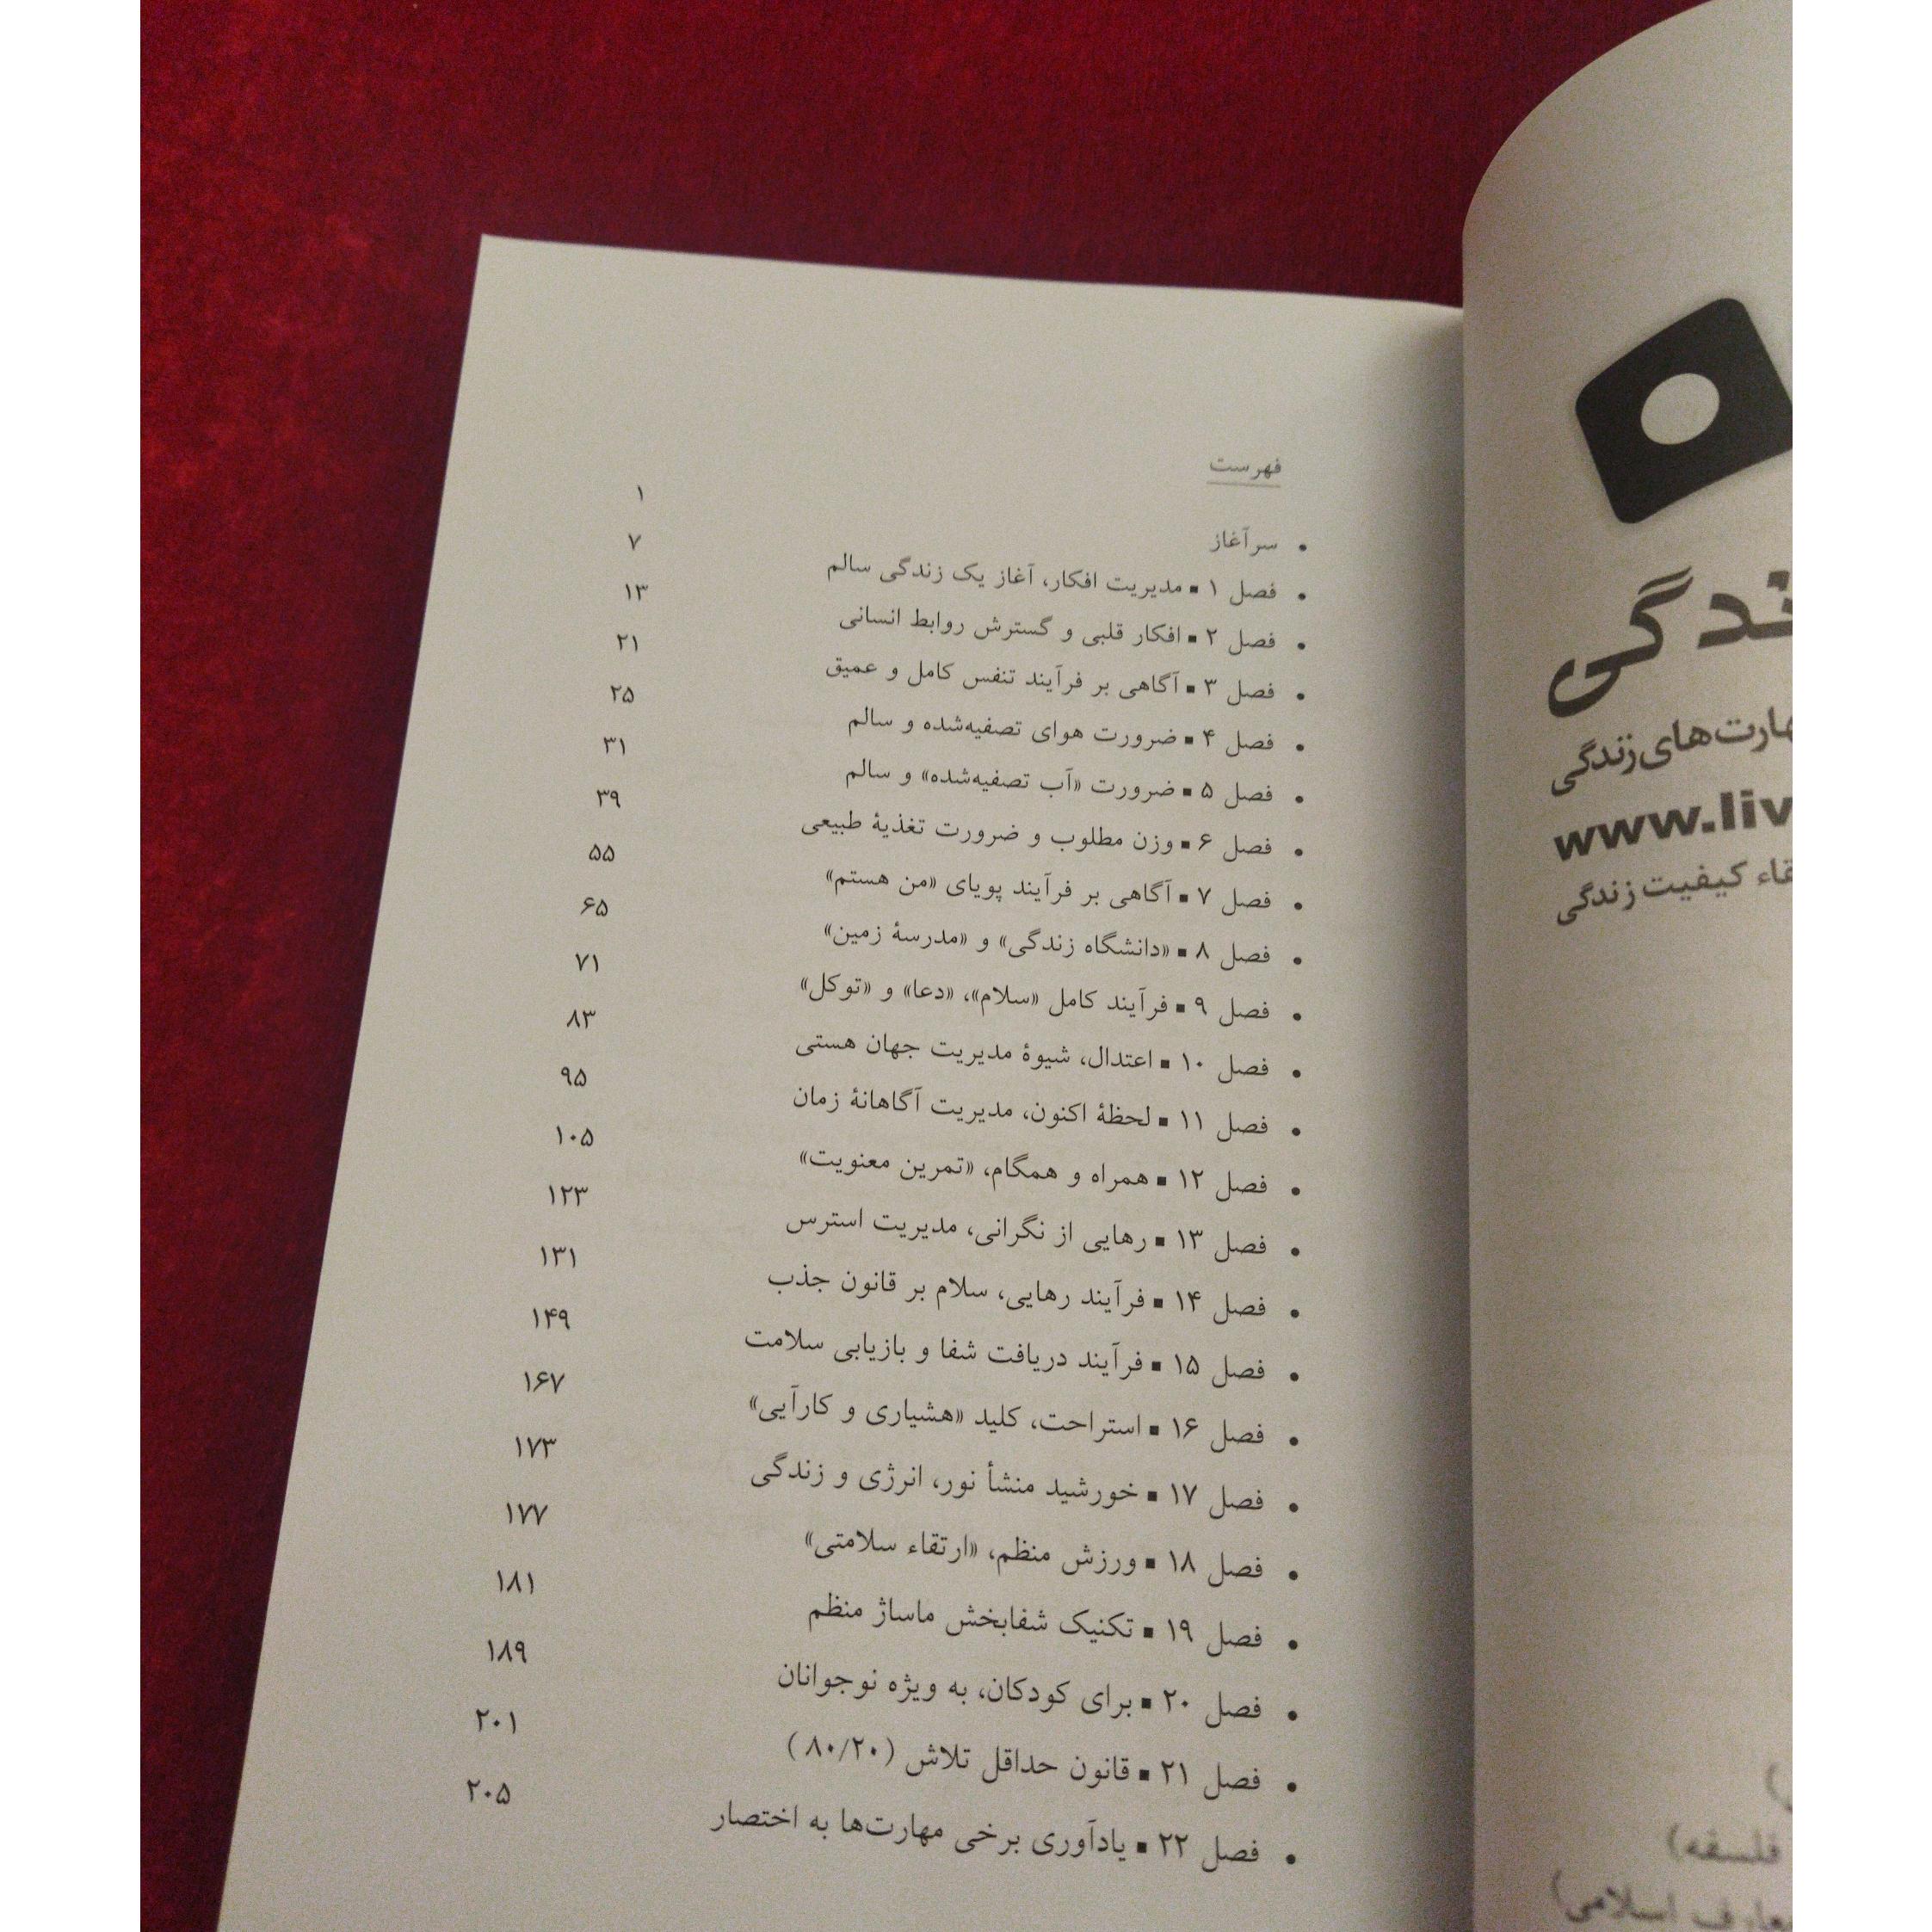 ندگی
هارت‌های زندگی
www.liv
قاء کیفیت زندگی
فلسفه)
عارف اسلامی)
فهرست
• سرآغاز ۱
• فصل ۱ ▪ مدیریت افکار، آغاز یک زندگی سالم ۷
• فصل ۲ ▪ افکار قلبی و گسترش روابط انسانی ۱۳
• فصل ۳ ▪ آگاهی بر فرآیند تنفس کامل و عمیق ۲۱
• فصل ۴ ▪ ضرورت هوای تصفیه‌شده و سالم ۲۵
• فصل ۵ ▪ ضرورت «آب تصفیه‌شده» و سالم ۳۱
• فصل ۶ ▪ وزن مطلوب و ضرورت تغذیهٔ طبیعی ۳۹
• فصل ۷ ▪ آگاهی بر فرآیند پویای «من هستم» ۵۵
• فصل ۸ ▪ «دانشگاه زندگی» و «مدرسهٔ زمین» ۶۵
• فصل ۹ ▪ فرآیند کامل «سلام»، «دعا» و «توکل» ۷۱
• فصل ۱۰ ▪ اعتدال، شیوهٔ مدیریت جهان هستی ۸۳
• فصل ۱۱ ▪ لحظهٔ اکنون، مدیریت آگاهانهٔ زمان ۹۵
• فصل ۱۲ ▪ همراه و همگام، «تمرین معنویت» ۱۰۵
• فصل ۱۳ ▪ رهایی از نگرانی، مدیریت استرس ۱۲۳
• فصل ۱۴ ▪ فرآیند رهایی، سلام بر قانون جذب ۱۳۱
• فصل ۱۵ ▪ فرآیند دریافت شفا و بازیابی سلامت ۱۴۹
• فصل ۱۶ ▪ استراحت، کلید «هشیاری و کارآیی» ۱۶۷
• فصل ۱۷ ▪ خورشید منشأ نور، انرژی و زندگی ۱۷۳
• فصل ۱۸ ▪ ورزش منظم، «ارتقاء سلامتی» ۱۷۷
• فصل ۱۹ ▪ تکنیک شفابخش ماساژ منظم ۱۸۱
• فصل ۲۰ ▪ برای کودکان، به ویژه نوجوانان ۱۸۹
• فصل ۲۱ ▪ قانون حداقل تلاش (۸۰/۲۰) ۲۰۱
• فصل ۲۲ ▪ یادآوری برخی مهارت‌ها به اختصار ۲۰۵